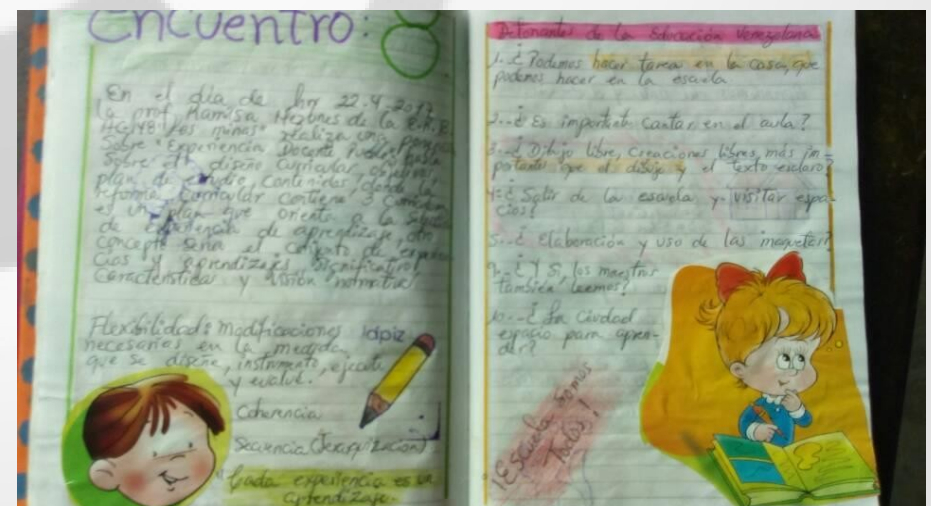 Encuentro: 8
En el día de hoy 22.4.2017
la prof Ramisa de la E.R.B.
"Las minas" realiza una
Sobre "Experiencia Docente
Sobre el diseño curricular, objetivos,
plan de estudio, contenidos, donde la
reforma curricular contiene 3
es un plan que orienta a la
de experiencia de aprendizaje, otro
concepto sería el conjunto de
cios y aprendizajes significativo!
Característica y visión normativa
Flexibilidad: modificaciones
lápiz
necesarias en la medida
que se diseñe, instrumente, ejecute
y evalue.
Coherencia
Secuencia
Cada experiencia es un
aprendizaje.
Detonantes de la Educación Venezolana
1.-¿Podemos hacer tarea en la casa, que
podemos hacer en la escuela
2.-¿Es importante cantar en el aula?
3.-¿Dibujo libre, creaciones libres, más im-
portante que el dibujo y el texto
4.-¿Salir de la escuela y visitar espa-
cios?
5.-¿Elaboración y uso de las maquetas?
9.-¿Y si, los maestros
también leemos?
10.-¿La Ciudad
espacio para apren-
der?
¡Escuela Somos
Todos!